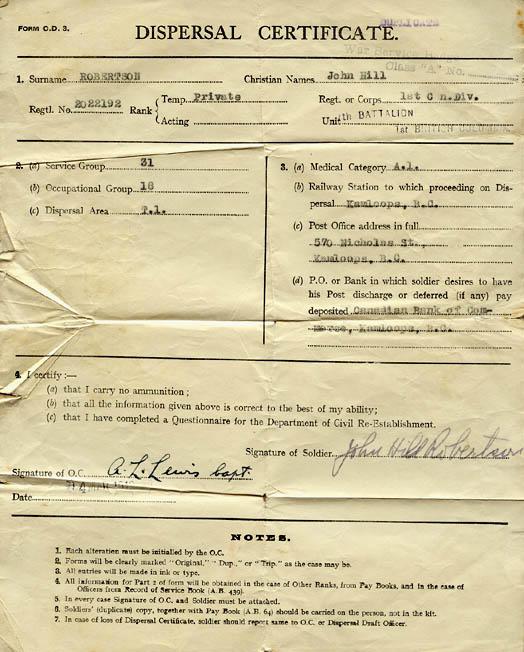 FORM C.D. 3.
DUPLICATE
DISPERSAL CERTIFICATE.
War Service Badge
Class "A" No.
1. Surname ROBERTSON Christian Names John Hill
Regtl. No. 2022192 Rank { Temp. Private Regt. or Corps 1st C n.Div.
Acting Unit th BATTALION
1st BRITISH COLUMBIA
2. (a) Service Group 31
(b) Occupational Group 18
(c) Dispersal Area T.1.
3. (a) Medical Category A.1.
(b) Railway Station to which proceeding on Dis-
persal Kamloops, B.C.
(c) Post Office address in full
570 Nicholas St.,
Kamloops, B.C.
(d) P.O. or Bank in which soldier desires to have
his Post discharge or deferred (if any) pay
deposited Canadian Bank of Com-
merce, Kamloops, B.C.
4. I certify:—
(a) that I carry no ammunition;
(b) that all the information given above is correct to the best of my ability;
(c) that I have completed a Questionnaire for the Department of Civil Re-Establishment.
Signature of Soldier John Hill Robertson
Signature of O.C. A. L. Lewis Capt.
Date
NOTES.
1. Each alteration must be initialled by the O.C.
2. Forms will be clearly marked "Original," "Dup.," or "Trip." as the case may be.
3. All entries will be made in ink or type.
4. All information for Part 2 of form will be obtained in the case of Other Ranks, from Pay Books, and in the case of
Officers from Record of Service Book (A.B. 439).
5. In every case Signature of O.C. and Soldier must be attached.
6. Soldiers' (duplicate) copy, together with Pay Book (A.B. 64) should be carried on the person, not in the kit.
7. In case of loss of Dispersal Certificate, soldier should report same to O.C. or Dispersal Draft Officer.